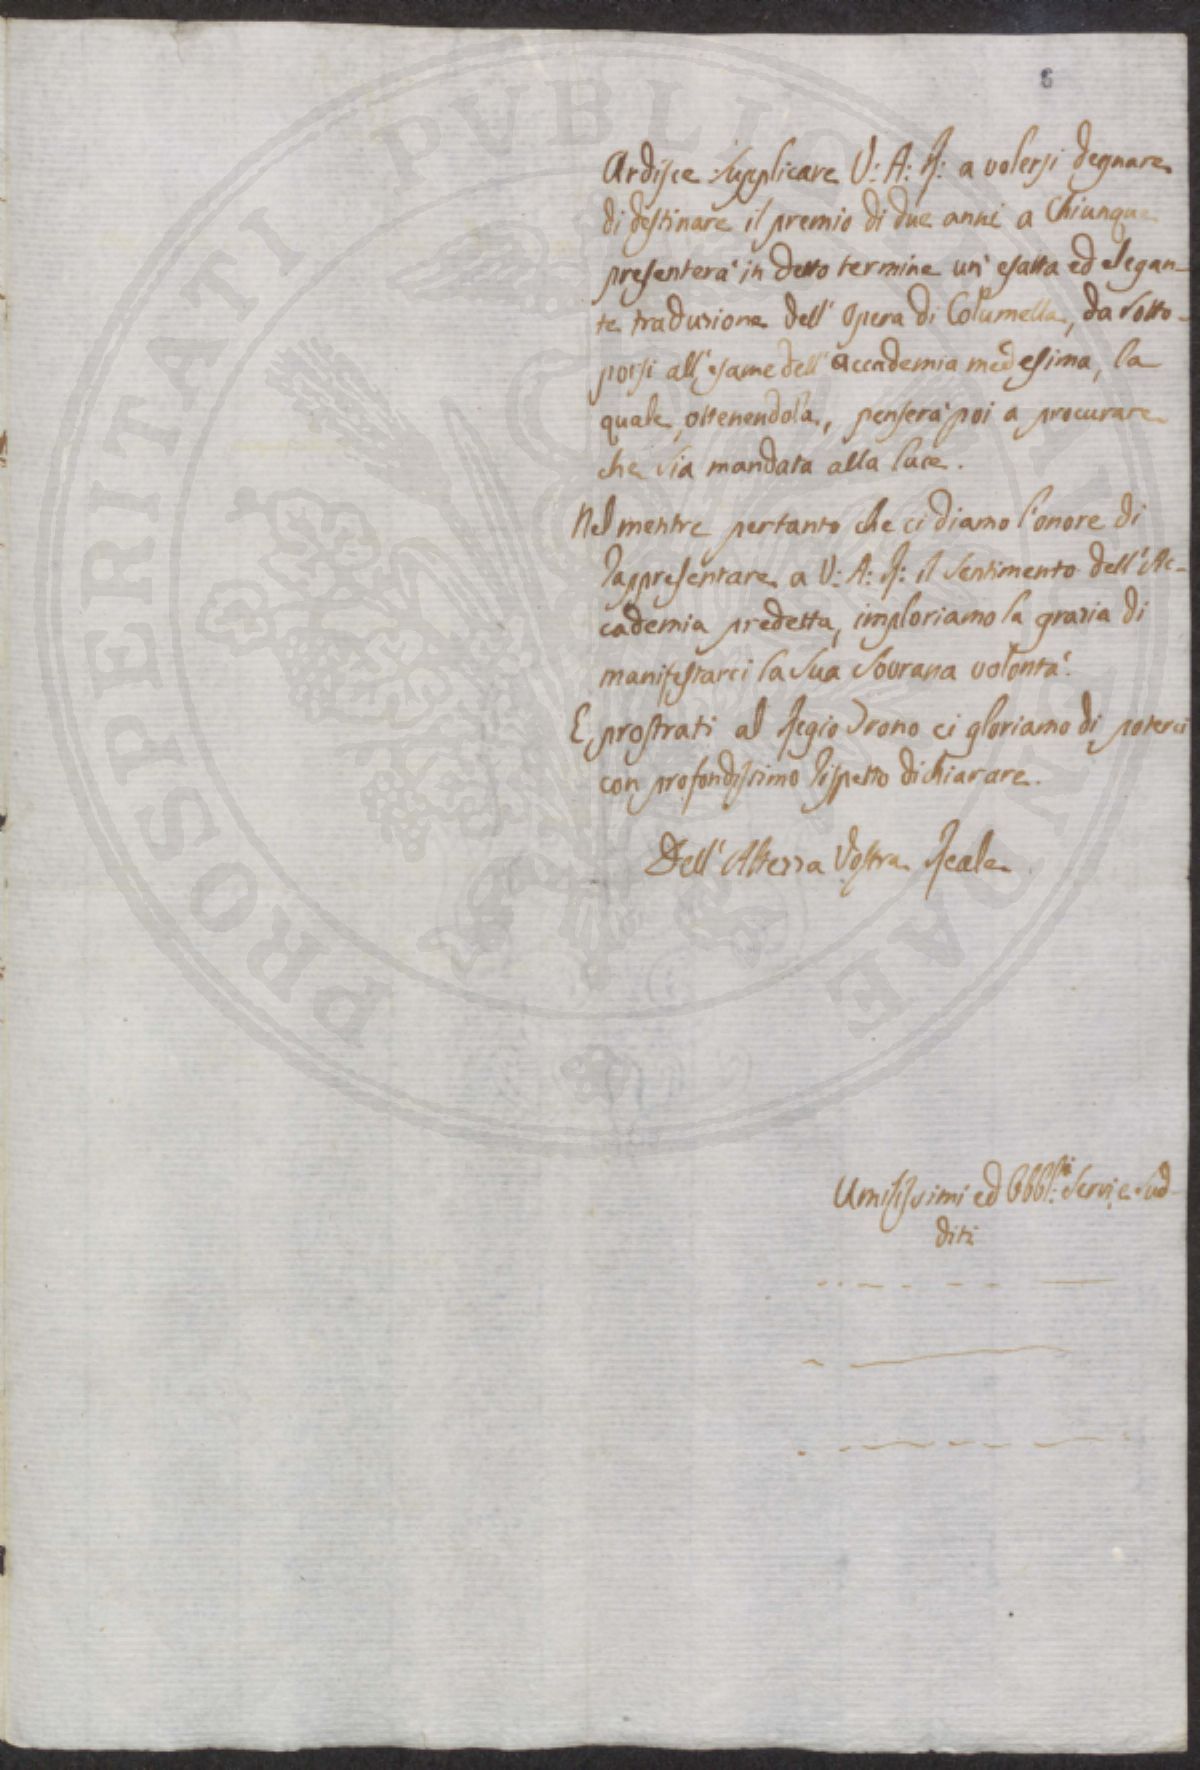 6
Ardisce supplicare V: A: R: a volersi degnare
di destinare il premio di due anni a Chiunque
presenterà in detto termine un' esatta ed elegan-
te traduzione dell' Opera di Columella, da sotto-
porsi all' esame dell' Accademia medesima, la
quale, ottenendola, penserà poi a procurare
che sia mandata alla luce.
Nel mentre pertanto che ci diamo l'onore di
rappresentare a V: A: R: il sentimento dell' Ac-
cademia predetta, imploriamo la grazia di
manifestarci la sua Sovrana volontà.
E prostrati al Regio Trono ci gloriamo di poterci
con profondissimo rispetto dichiarare.
Dell' Altezza Vostra Reale
Umilissimi ed Obbl:mi Servi e Sud-
diti
PROSPERITATI PVBLICAE AVGENDAE